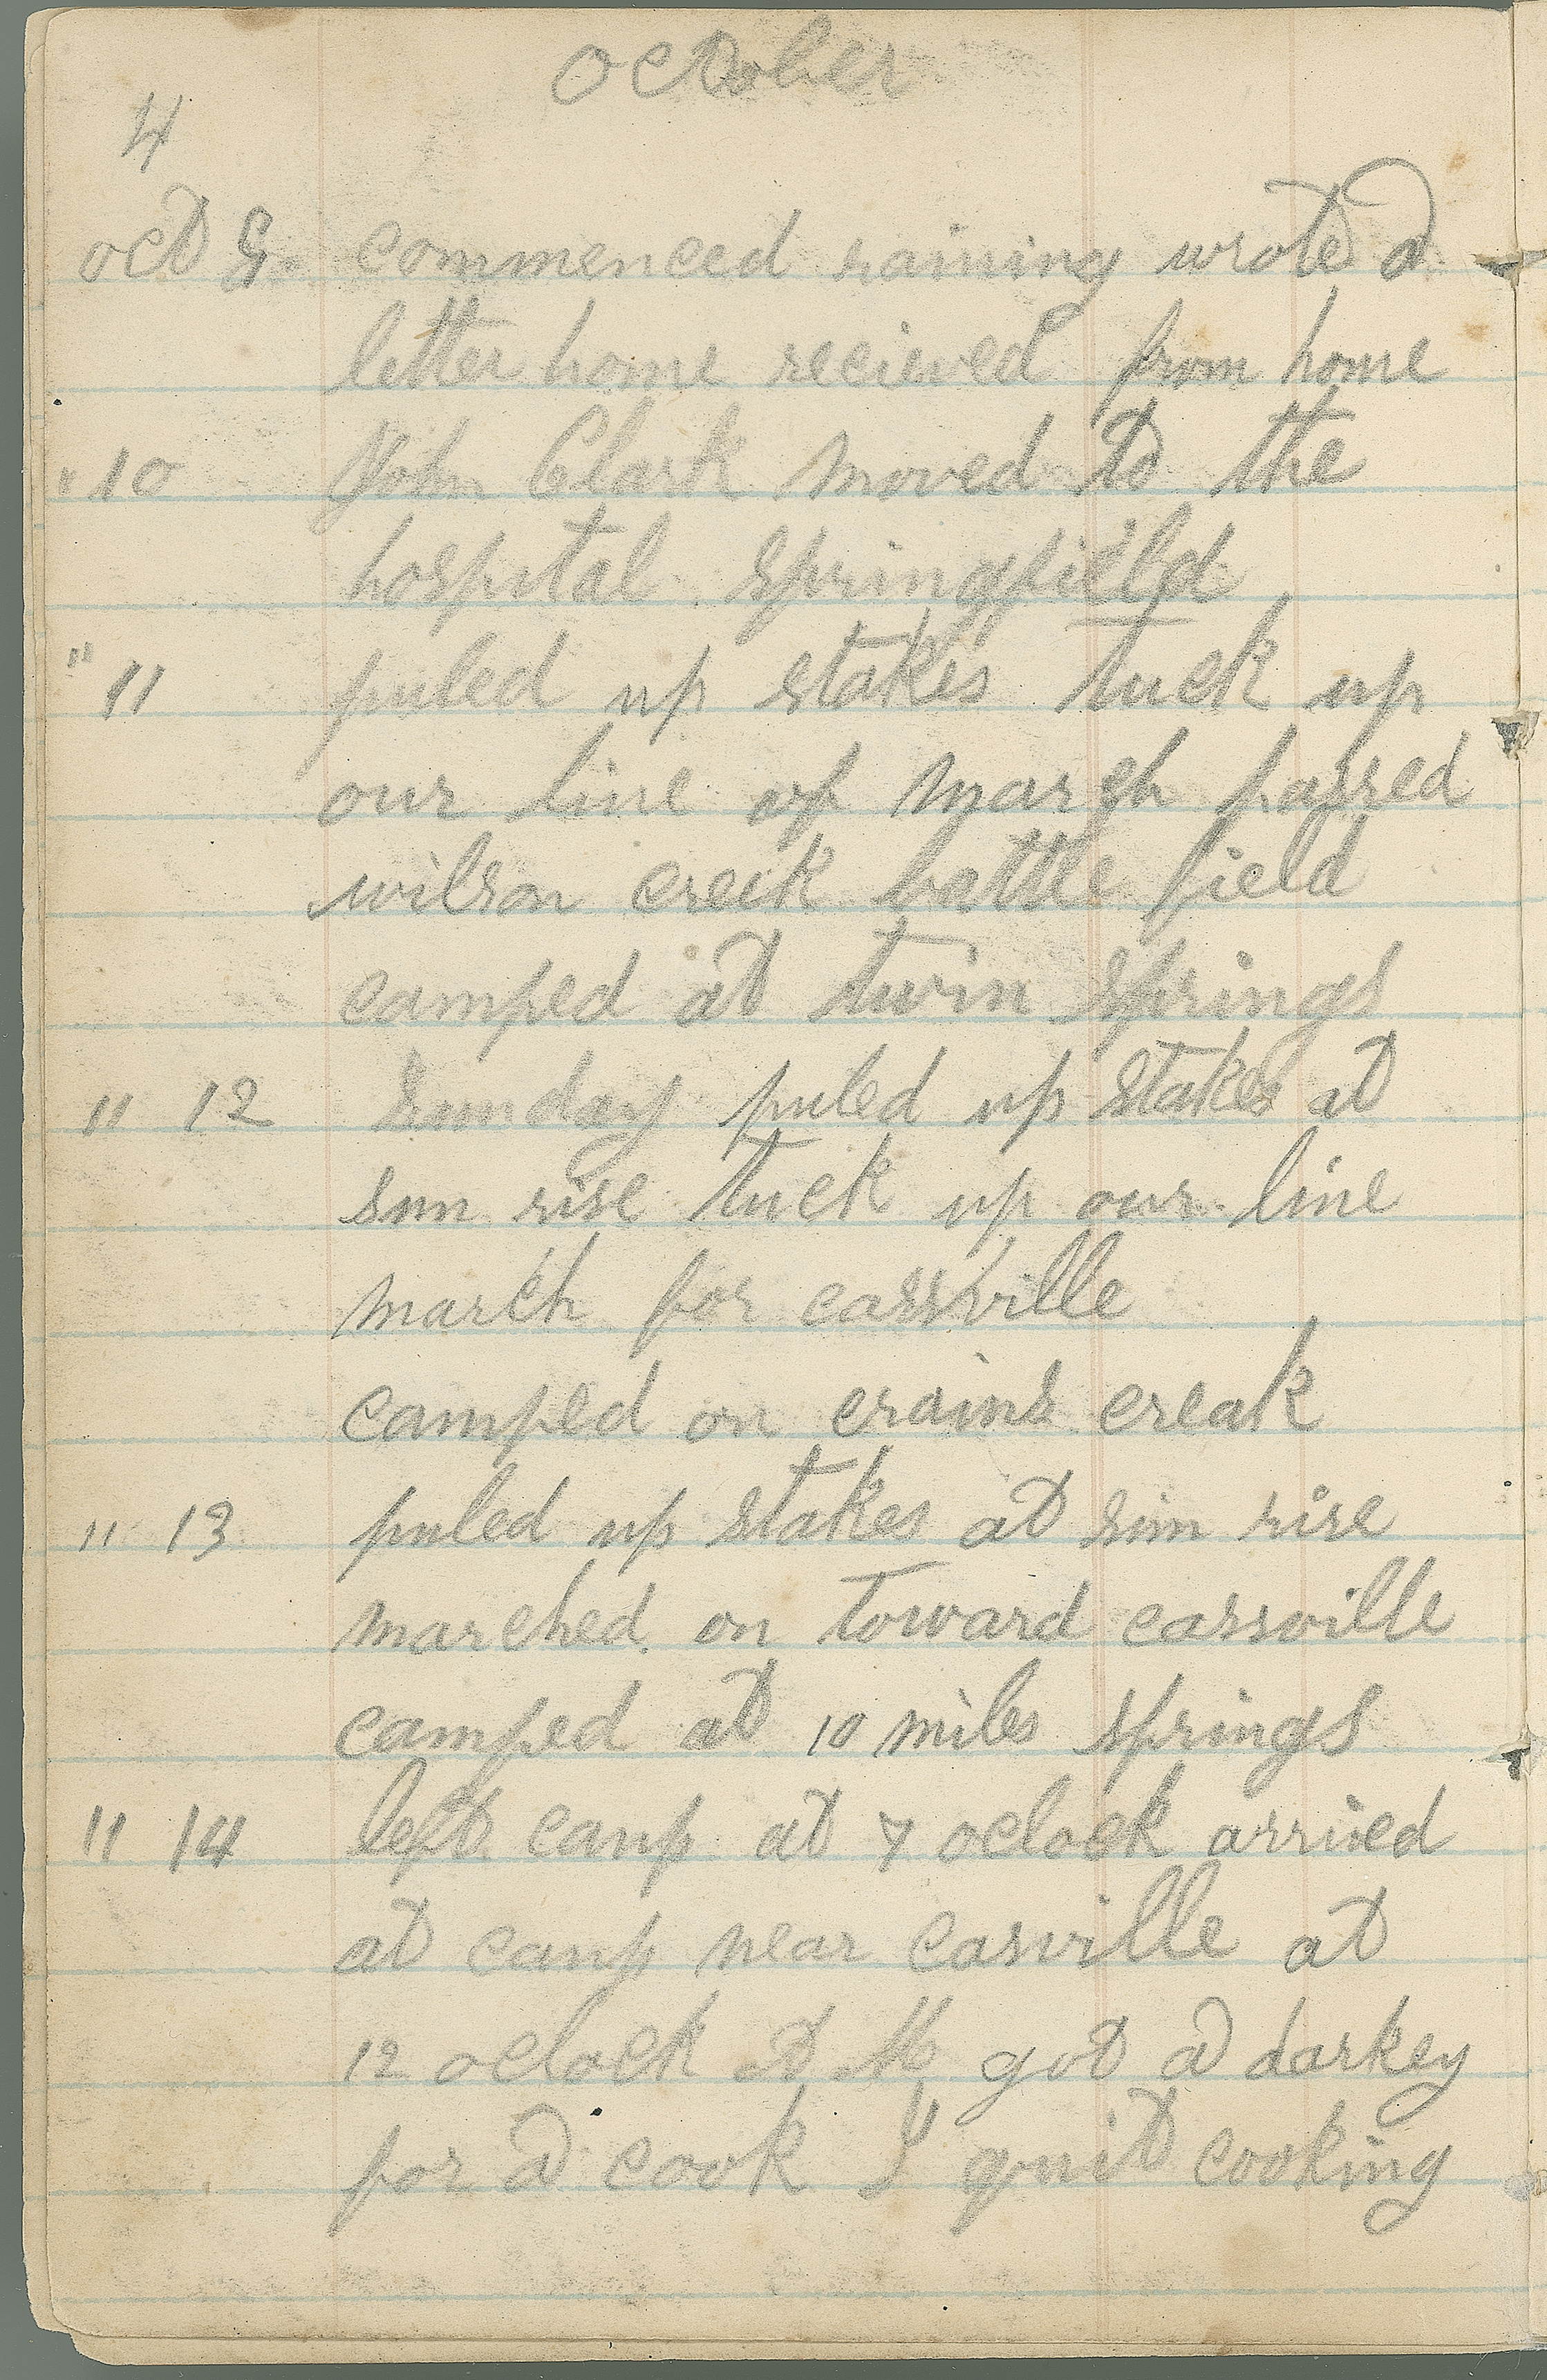 October
4
oct 9 commenced raining wrote a
letter home recieved from home
" 10 John Clark moved to the
hospital springfield
" 11 puled up stakes tuck up
our line of march passed
wilson creek battle field
camped at twin springs
" 12 sunday puled up stakes at
sun rise tuck up our line
march for cassville
camped on crains creak
" 13 puled up stakes at sun rise
marched on toward cassville
camped at 10 miles springs
" 14 left camp at 7 oclock arrived
at camp near casville at
12 oclock at M got a darkey
for a cook I quit cooking